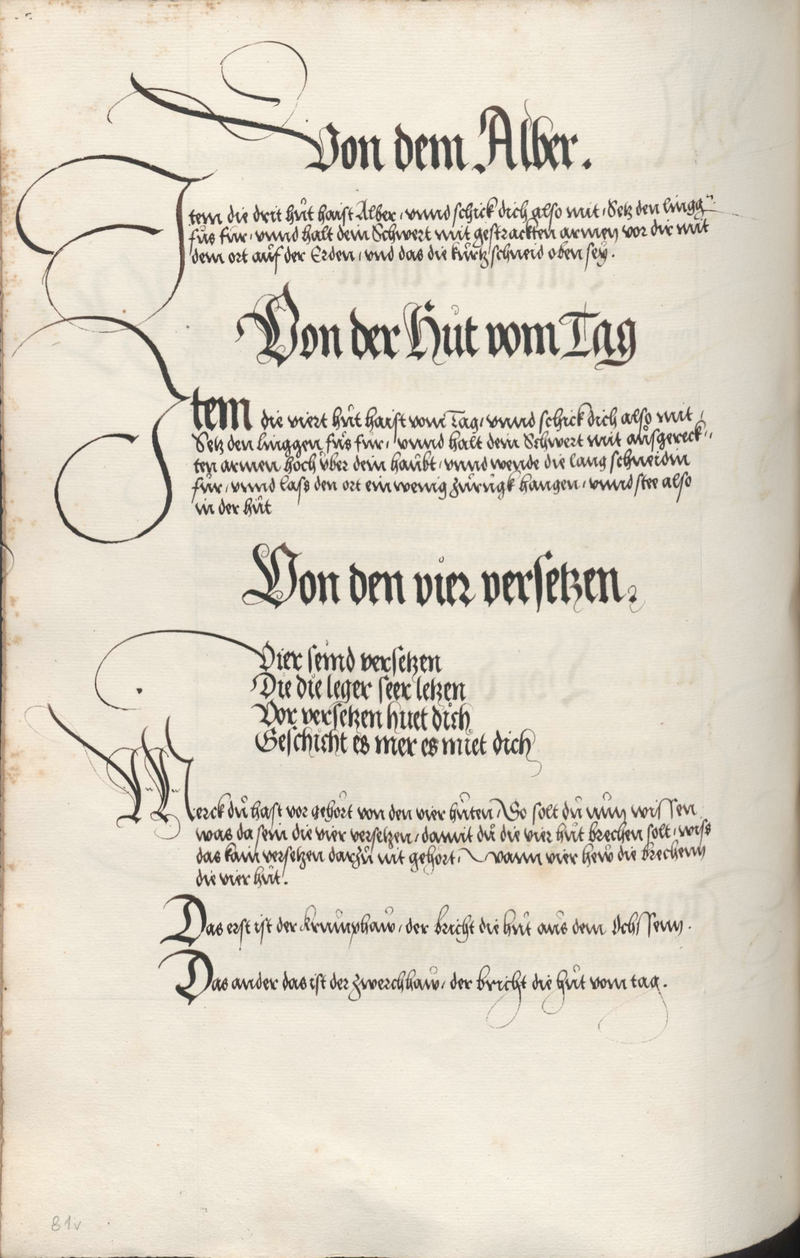 Von dem Alber.
Item die drit hůt haist Alber, vnnd schick dich also mit, Setz den lingg
fůs für, vnnd halt dein Schwert mit gestrackten armen vor dir mit
dem ort auf der Erden, vnd das die kůrtz schneid oben sey.
Von der Hůt vom Tag
Item die viert hůt haist vom Tag, vnnd schick dich also mit,
Setz den linggen fůs für, vnnd halt dein Schwert mit aůsgereck-
ten armen hoch über dein haůbt, vnnd wende die lang schneidn
für, vnnd lass den ort ein wenig zůrugk hangen, vnnd stee also
in der hůt
Von den vier versetzen.
Vier seind versetzen
Die die leger seer letzen
Vor versetzen huet dich
Geschicht es mer es müet dich
Merck dů hast vor gehört von den vier hůten, So solt dů nůn wissen
was da sein die vier versetzen, damit dů die vier hůt brechen solt, wiss
das kain versetzen darzů nit gehört, wann vier hew die brechenn
die vier hůt.
Das erst ist der Krumphaw, der bricht die hůt aus dem Ochssenn.
Das ander das ist der zwerchhaw, der bricht die hůt vom tag.
81v